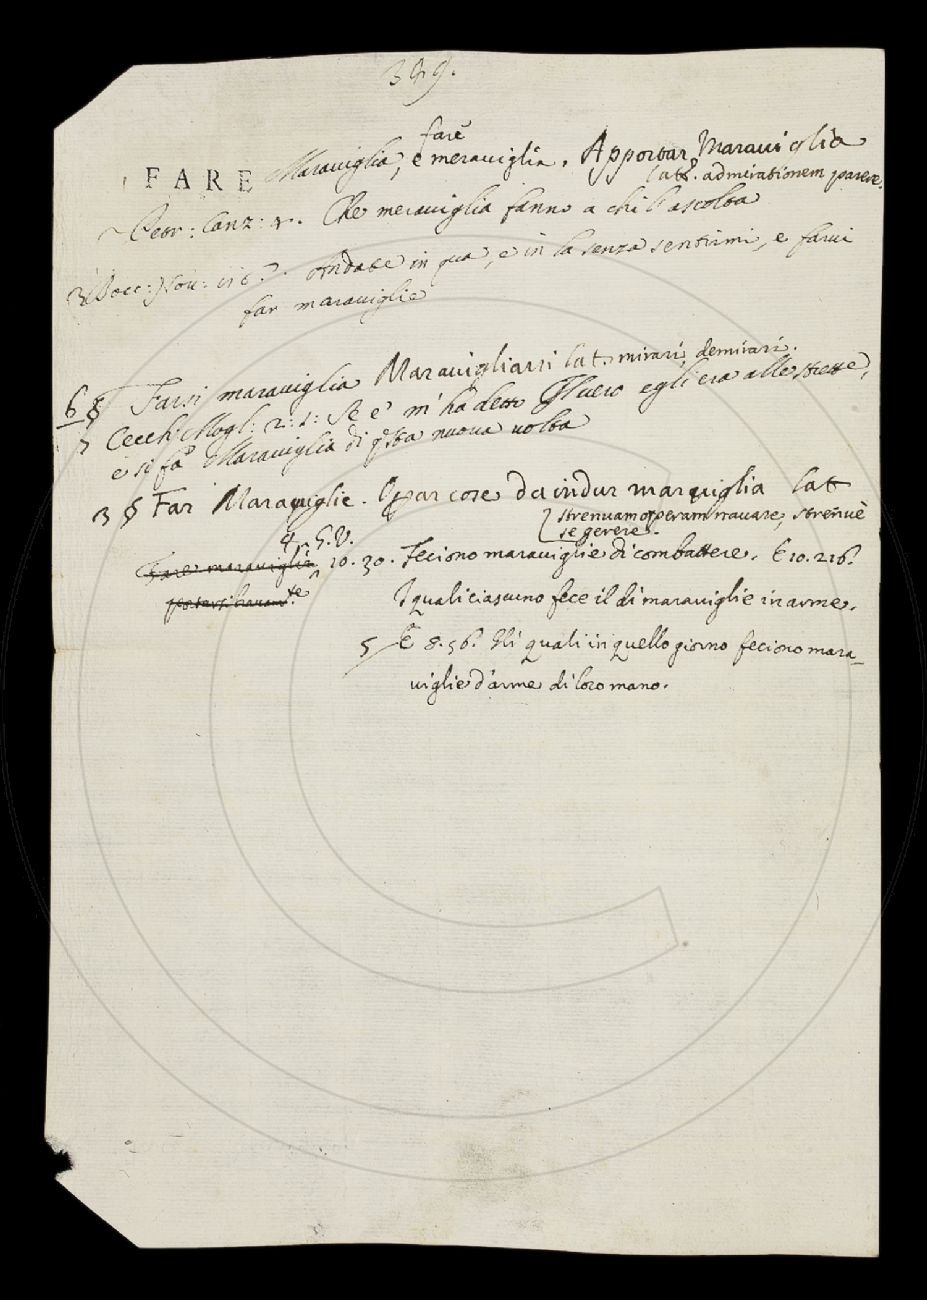 399.
fare
FARE Maraviglia, e meraviglia. Apportar Maraviglia
latt. admirationem parere.
Petr: Canz: 4. Che meraviglia fanno a chi l'ascolta
3 Bocc: Nov: Andate in qua, e in la senza sentirmi, e farvi
far maraviglie
6 § Farsi maraviglia Maravigliarsi lat. mirari, demirari.
7 Cecch. Mogl: 2: 1: Se e' m'ha detto il vero egli era alle strette,
e si fa Maraviglia di q.sta nuova volta
3 § Far Maraviglie. Oparcose da indur maraviglia lat
strenuam operam navare, strenuè
se gerere.
4 G.V.
Fare maraviglie 10. 30. Feciono maraviglie di combattere. E 10. 216.
I quali ciascuno fece il di maraviglie in arme.
5 E 8. 56. Gli quali in quello giorno feciono mara-
viglie d'arme di loro mano.